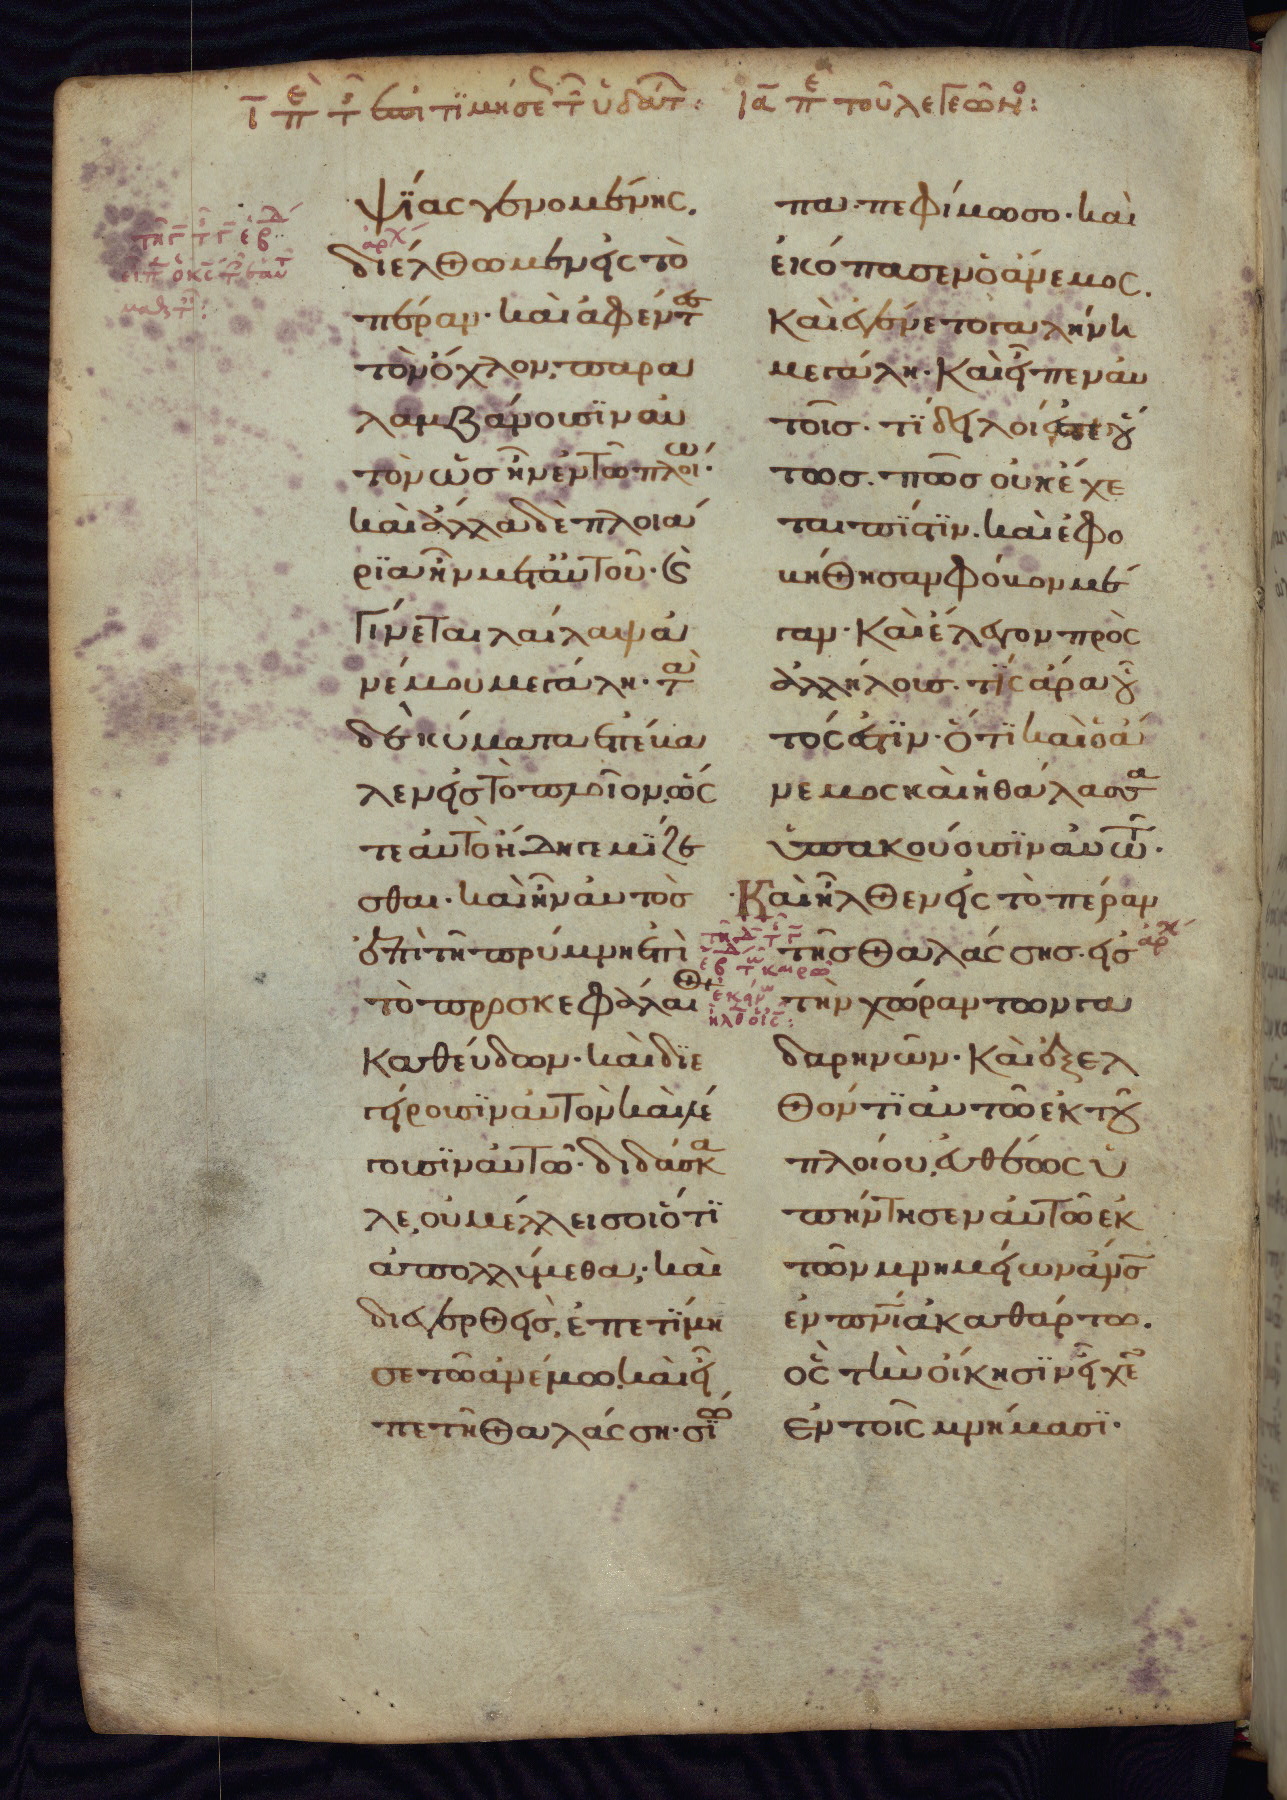 ι̅ πε τ ἐπιτϊμήσε τ ὑδάτ: ια̅ πε τοῦ λεγεῶνο:
τῇ γ τ γ ἑβδ
εἶπ ὁ κς τ ἑαυτ
μαθτ:
ἀρχ
ψΐας γενομένης.
διέλθωμεν εἰς τὸ
πέραν· καὶ ἀφέντες
τὸν ὄχλον, παρα
λαμβάνουσϊν αυ
τὸν ὡς ἦν ἐν τῶ πλοίω·
καὶ ἄλλα δὲ πλοιά
ρϊα ἦν μετ αὐτοῦ· καὶ
Γίνεται λαίλαψ ἀ
νέμου μεγάλη· τὰ
δὲ κύματα ἐπέβα
λεν εἰς τὸ πλοῖον, ὥς
τε αὐτὸ ἤδη γεμΐζε
σθαι· καὶ ἦν αὐτὸς
ἐπὶ τῆ πρύμνη ἐπὶ
τὸ προσκεφάλαι
καθεύδων· καὶ δϊε
γείρουσϊν αὐτὸν καὶ λέ
γουσϊν αὐτῶ· διδάσκα
λε, οὐ μέλλει σοι ὅτϊ
ἀπολλύμεθα; καὶ
διεγερθεὶς, ἐπετΐμη
σε τῶ ἀνέμω, καὶ εἶ
πε τῆ θαλάσση· σϊώ
πα· πεφίμωσο· καὶ
ἐκόπασεν ὁ ἄνεμος.
Καὶ ἐγένετο γαλήνη
μεγάλη· Καὶ εἶπεν αυ
τοῖς· τΐ δειλοί ἐστε οὕ
τως. πῶς οὐκ ἔχε
ται πΐστϊν. καὶ ἐφο
βήθησαν φόβον μέ
γαν· Καὶ ἔλεγον πρὸς
ἀλλήλους. τΐς ἄρα οὗ
τός ἐστϊν· ὅτϊ καὶ ὁ ἄ
νεμος καὶ ἡ θάλασσα
ὑπακούουσϊν αὐτῶ·
Καὶ ἦλθεν εἰς τὸ πέραν
τῆς θαλάσσης· εἰς
ἀρχ
τῇ δ τ γ
ἑβδ τω καιρῶ
ἐκείνω
ἦλθ ὁ ις:
τὴν χώραν τῶν γα
δαρηνῶν· Καὶ ἐξελ
θόντϊ αὐτῶ ἐκ τοῦ
πλοίου, εὐθέως ὑ
πήντησεν αὐτῶ ἐκ
τῶν μνημείων ἄνος
ἐν πνϊ ἀκαθάρτω.
ὃς τὴν οἴκησϊν εἶχεν
ἐν τοῖς μνήμασϊ·